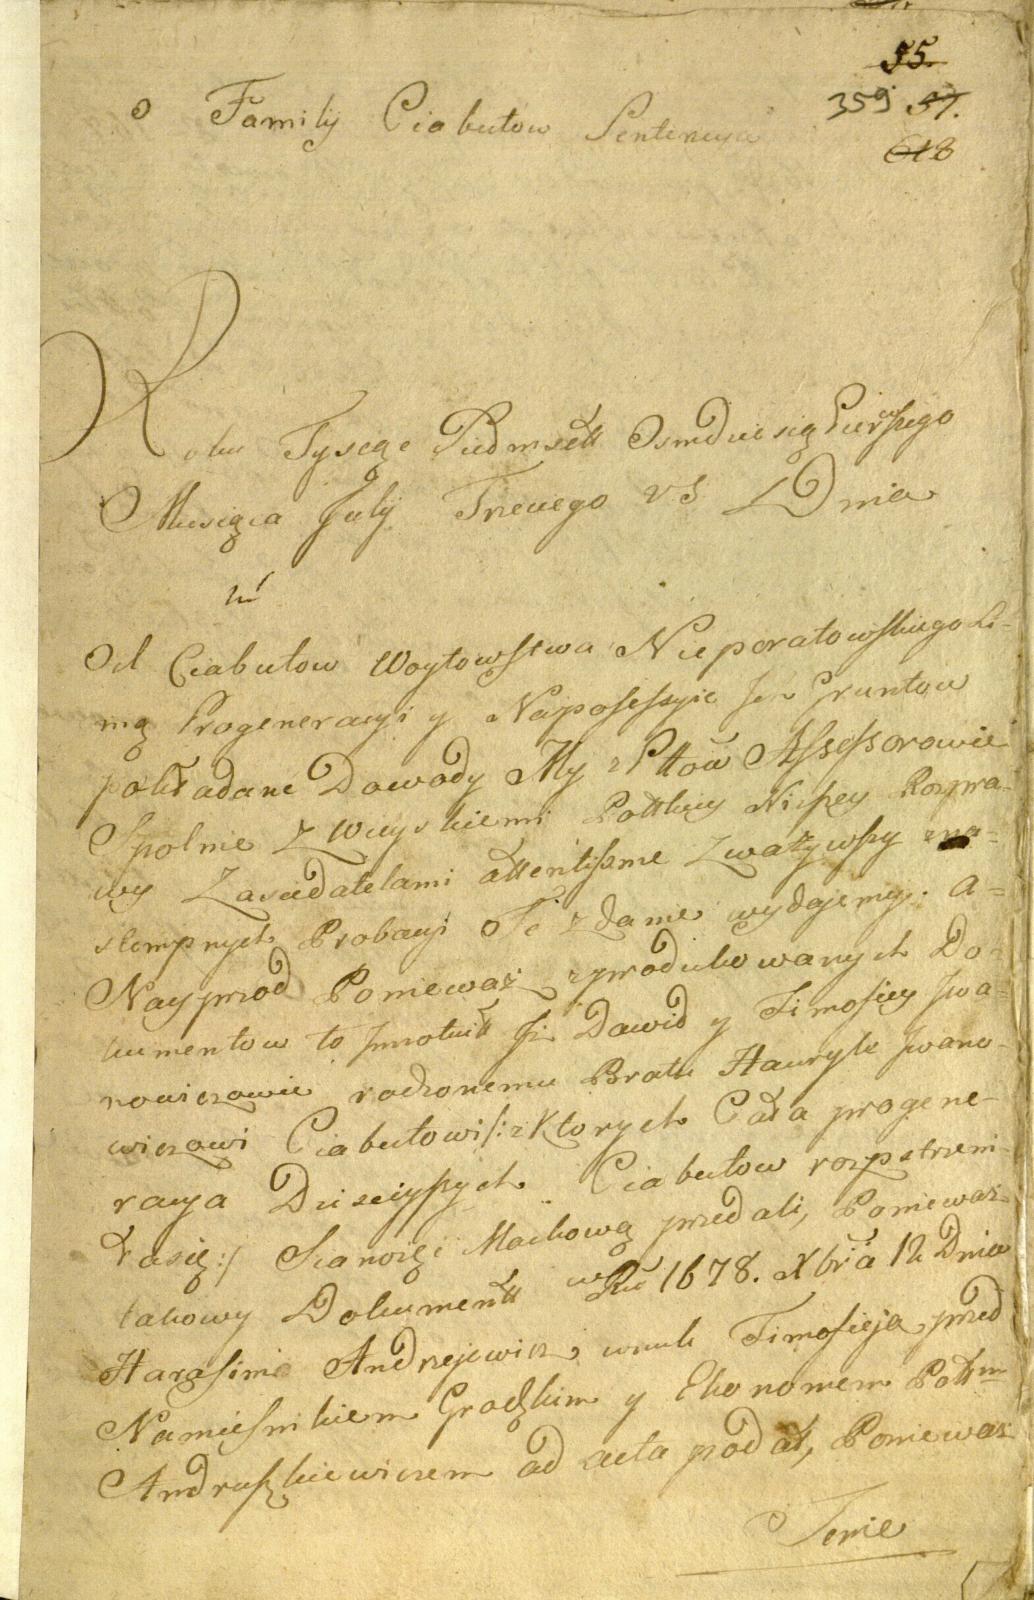 55.
359 57.
618
o Familij Ciabutow Sentencya
Roku Tysege Siedmsett Osmdziesią Pierwszego
Miesiąca Julij Trzeciego VS Dnia
Od Ciabutow Woytowstwa Nieporatowskiego Li-
nią Progeneracyi y Naposessyie Ich Gruntow
pokładane Dowody My z Pttow Assessorowie
Spolnie z Wuyskiemi Pottkuy Niszey Rozpra-
wy Zasiedatelami attentissme Zważywszy
stempnych Probacyi Te zdanie wydajemy. A-
Nayprzod Poniewaz zprodukowanych Do-
kumentow to Iż Dawid y Timofiey Iwa-
nowiczowie rodzonemu Bratu Hawryle Iwano-
wiczowi Ciabutowi/: z Ktorych Cała progene-
racya Dzisieyszych Ciabutow rozpstrzeni-
łasię:/ Sianożęć Machową przedali, Poniewaz
takowy Dokumentt w Ru 1678. Xbra 12 Dnia
Harasim Andrzejewicz, wnuk Timofieja, przed
Namiesnikiem Grodzkim y Ekonomem Pottm
Andruszkiewiczem ad acta podał, Poniewaz
Tenie